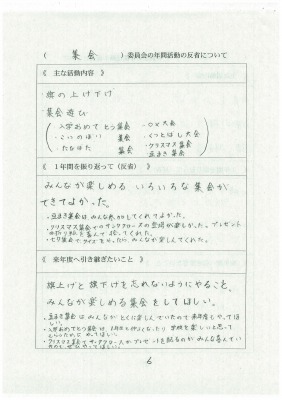 ( 集会 )委員会の年間活動の反省について
《 主な活動内容 》
・旗の上げ下げ
・集会
・入学おめでとう集会 ・○×大会
・こいのぼり 集会 ・くつとばし大会
・たなばた 集会 ・クリスマス集会
・豆まき集会
《 1年間を振り返って(反省) 》
みんなが楽しめる いろいろな集会が
できてよかった。
・豆まき集会はみんな参加してくれてよかった。
・クリスマス集会でのサンタクロースの登場が楽しかった。プレゼント
・七夕集会でクイズをやったり、みんなが楽しんでくれた。
《 来年度へ引き継ぎたいこと 》
旗上げと旗下げを忘れないようにやること。
みんなが楽しめる集会をしてほしい。
・豆まき集会はみんながとくに楽しんでいたので来年度もやってほ
しい。
・入学おめでとう集会は、1年生と仲よくなったり 学校を楽しいと思って
もらうためにやってほしい。
・クリスマス集会でサンタクロースがプレゼントを配るのがみんな喜んでい
6